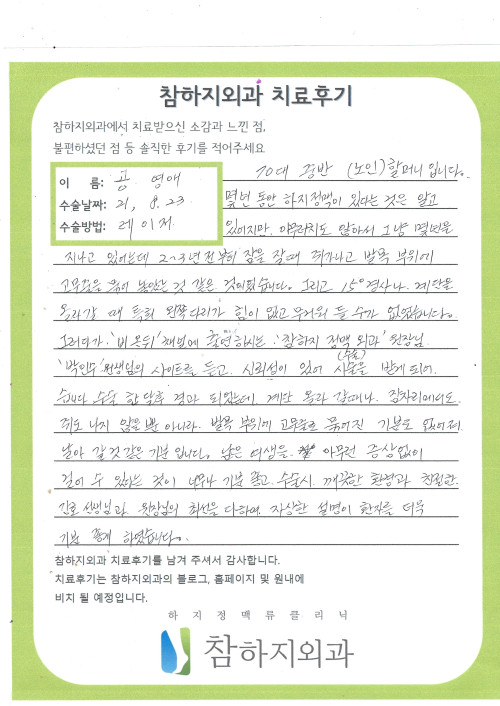 참하지외과 치료후기
참하지외과에서 치료받으신 소감과 느낀 점,
불편하셨던 점 등 솔직한 후기를 적어주세요
이 름: 공 영애
수술날짜: 21, 8. 23
수술방법: 레이저
70대 중반 (노인) 할머니 입니다.
몇년 동안 하지정맥이 있다는 것은 알고
있어지만 아무러치도 안하서 그냥 몇년을
지나고 있었는데 2~3년 전부터 잠을 잘때 쥐가나고 발목 부위에
고무줄을 묶어 놓았는 것 같은 것이였습니다. 그리고 15° 경사나 계단을
올라갈 때 특히 왼쪽다리가 힘이 없고 무거워 들 수가 없었습니다.
그러다가 '비온뒤' 채널에 출연하시는 '참하지 정맥 외과' 원장님
'박인수' 원장님의 사이트를 듣고 신뢰성이 있어 시술을 받게 되어.
(수술)
수술 한달후 경과 되었는데. 계단 올라 갈때나. 잠자리에서도.
쥐도 나지 않을 뿐 아니라. 발목 부위에 고무줄로 묶어진 기분도 없어져
날아 갈것 같은 기분 입니다. 남은 여생을 아무런 증상없이
걸어 수 있다는 것이 너무나 기분 좋고. 수술시 깨끗한 환경과 친절한
간호 선생님과. 원장님의 최선을 다하여 자상한 설명이 환자를 더욱
기분 좋게 하였습니다.
참하지외과 치료후기를 남겨 주셔서 감사합니다.
치료후기는 참하지외과의 블로그, 홈페이지 및 원내에
비치 될 예정입니다.
하지정맥류클리닉
참하지외과